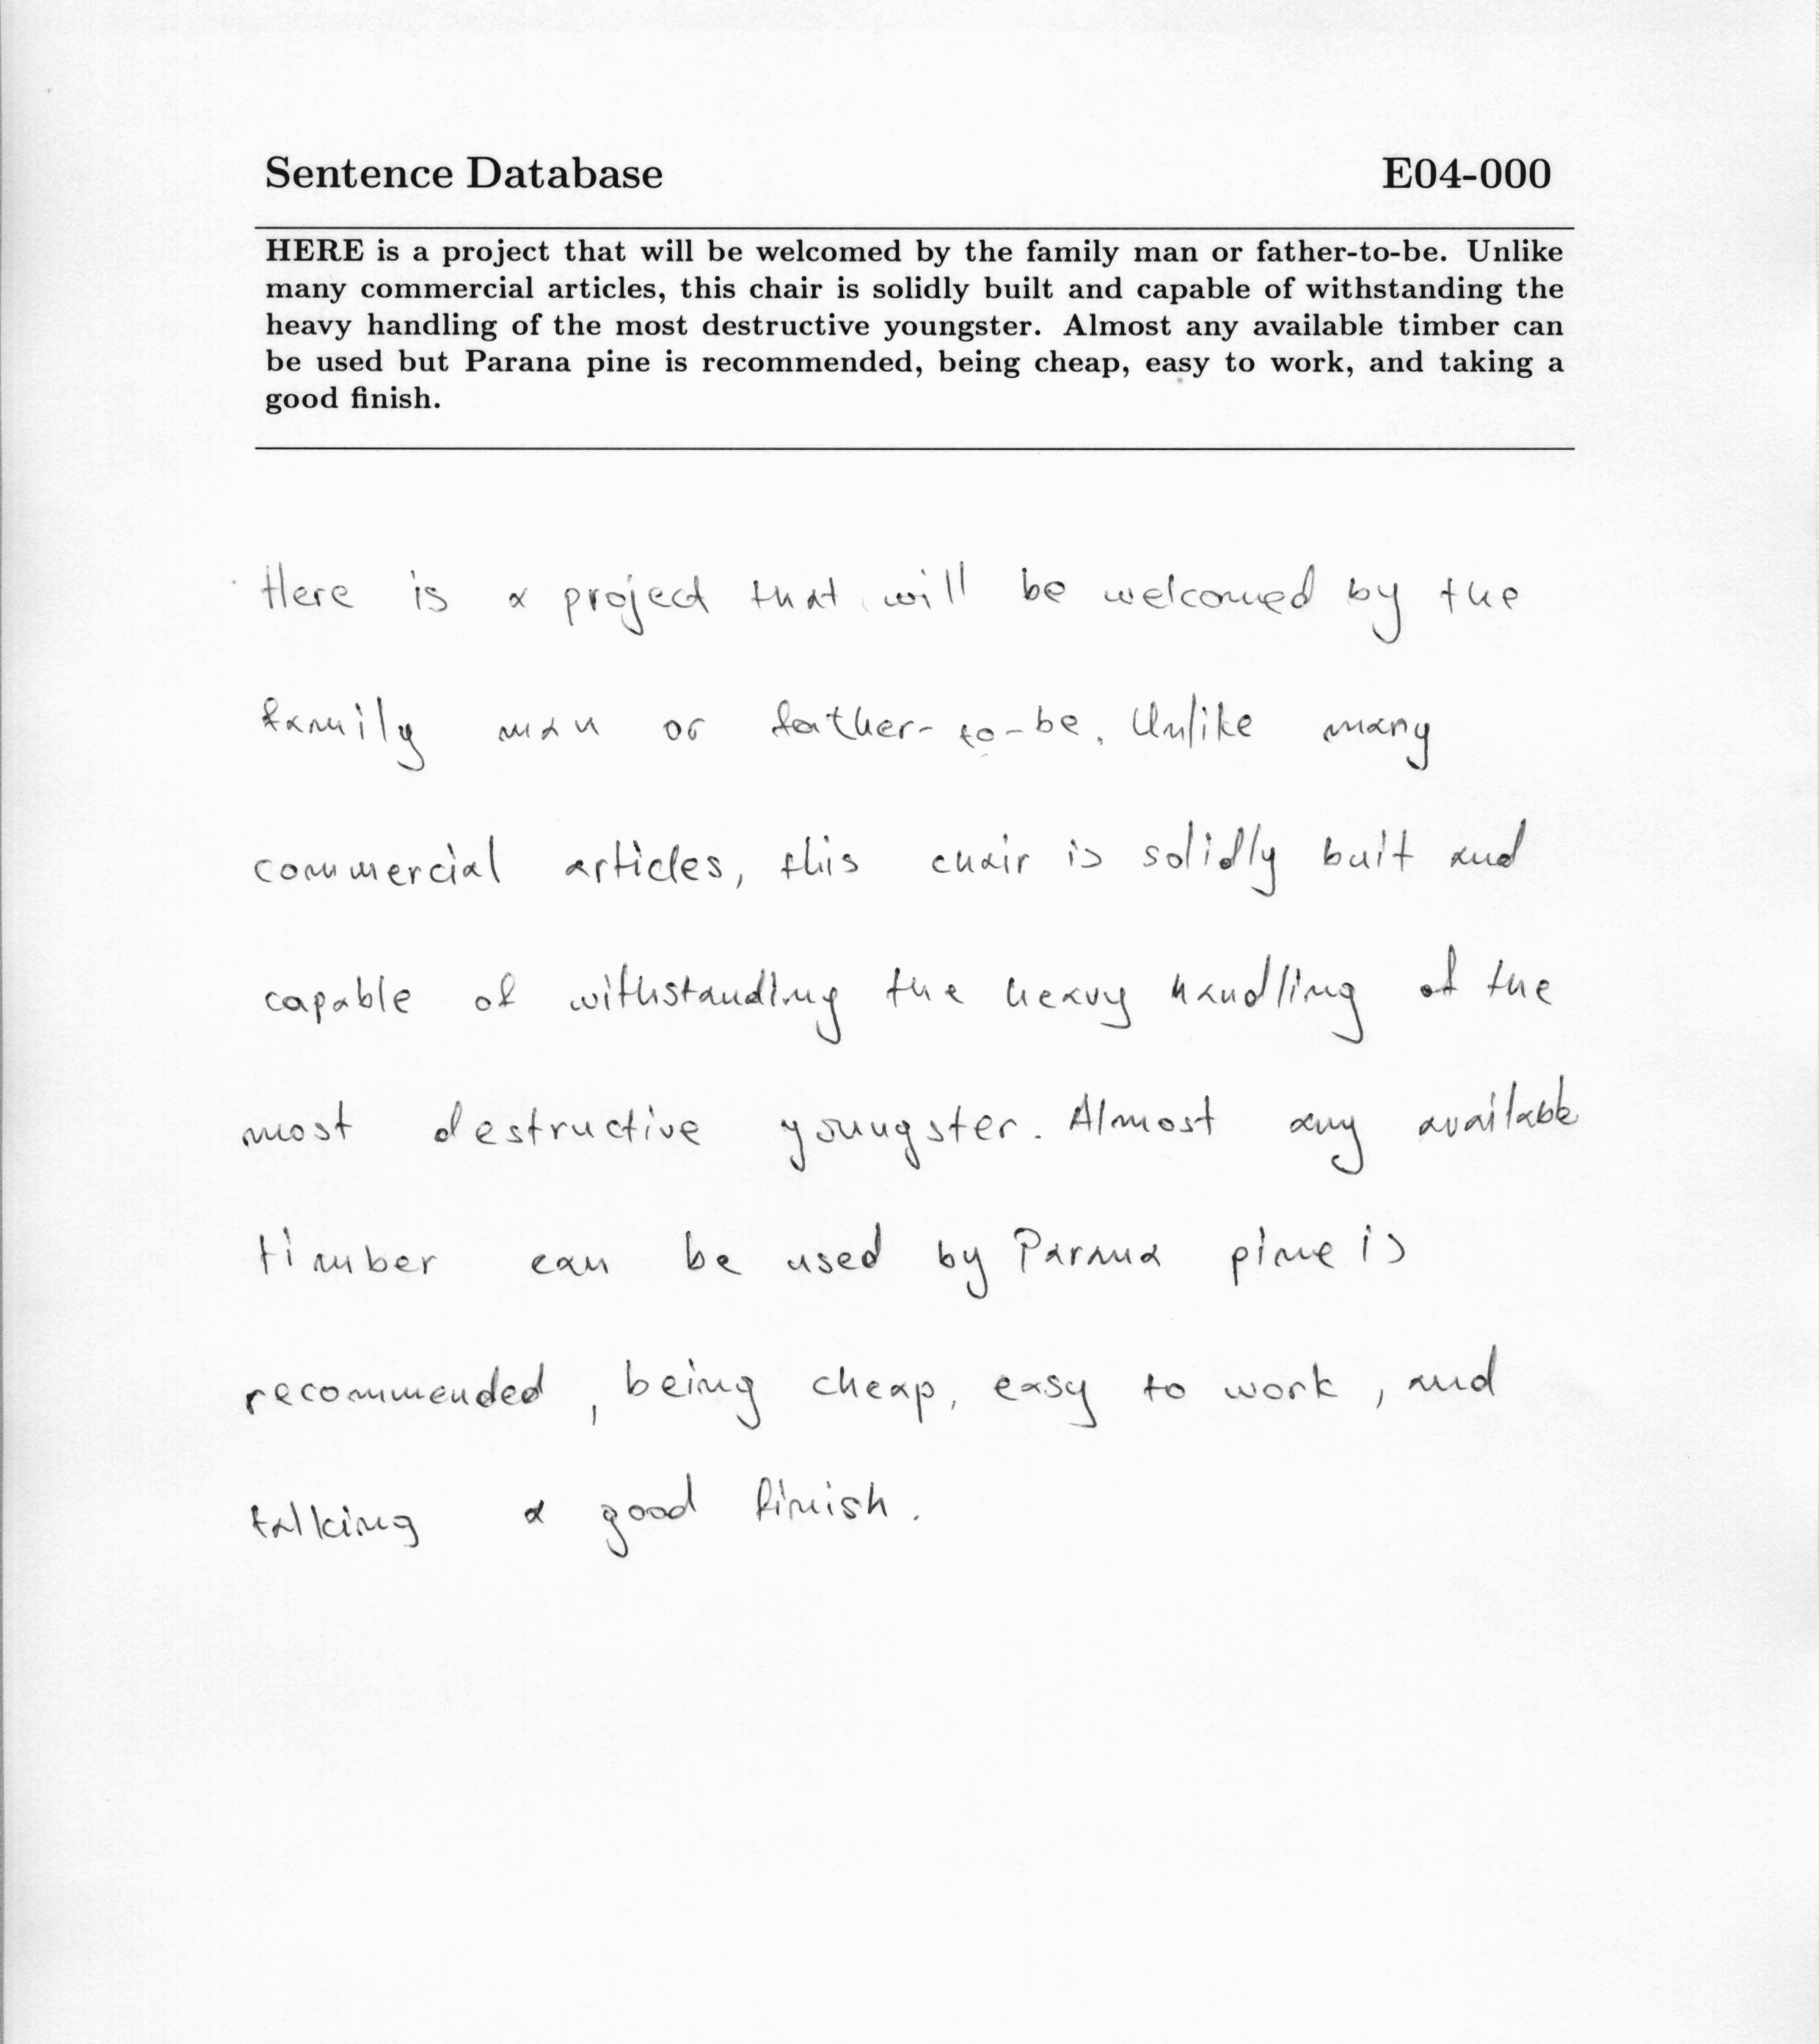 Sentence Database E04-000
HERE is a project that will be welcomed by the family man or father-to-be. Unlike
many commercial articles, this chair is solidly built and capable of withstanding the
heavy handling of the most destructive youngster. Almost any available timber can
be used but Parana pine is recommended, being cheap, easy to work, and taking a
good finish.
Here is a project that will be welcomed by the
family man or father-to-be. Unlike many
commercial articles, this chair is solidly buit and
capable of withstanding the heavy handling of the
most destructive youngster. Almost any available
timber can be used by Parana pine is
recommended, being cheap, easy to work, and
talking a good finish.